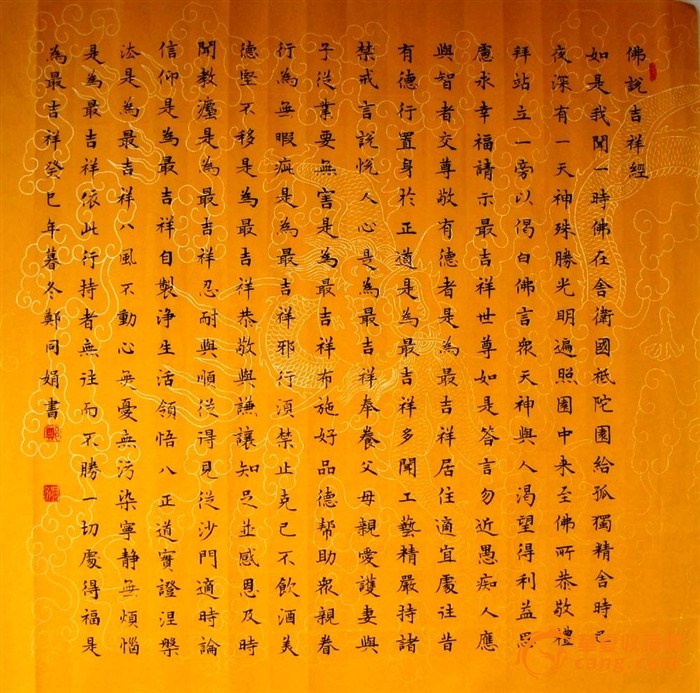 佛說吉祥經
如是我聞一時佛在舍衛國祇陀園給孤獨精舍時已
夜深有一天神殊勝光明遍照園中来至佛所恭敬禮
拜站立一旁以偈白佛言衆天神與人渴望得利益思
慮求幸福請示最吉祥世尊如是答言勿近愚痴人應
與智者交尊敬有德者是為最吉祥居住適宜處往昔
有德行置身於正道是為最吉祥多聞工藝精嚴持諸
禁戒言說悅人心是為最吉祥奉養父母親愛護妻與
子從業要無害是為最吉祥布施好品德幫助衆親眷
行為無瑕疵是為最吉祥邪行須禁止克己不飲酒美
德堅不移是為最吉祥恭敬與謙讓知足並感恩及時
聞教是為最吉祥忍耐與順從得見從沙門適時論
信仰是為最吉祥自製淨生活領悟八正道實證涅槃
法是為最吉祥八風不動心無憂無污染寧静無煩惱
是為最吉祥依此行持者無往而不勝一切處得福是
為最吉祥癸巳年暮冬鄭同娟書
cang.com